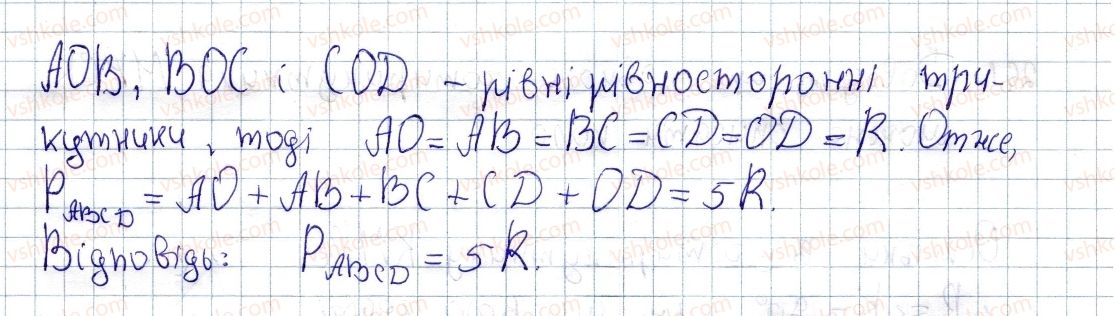 AOB, BOC і COD – рівні рівносторонні три-
кутники, тоді AO = AB = BC = CD = OD = R. Отже,
P_ABCD = AO + AB + BC + CD + OD = 5R.
Відповідь: P_ABCD = 5R.